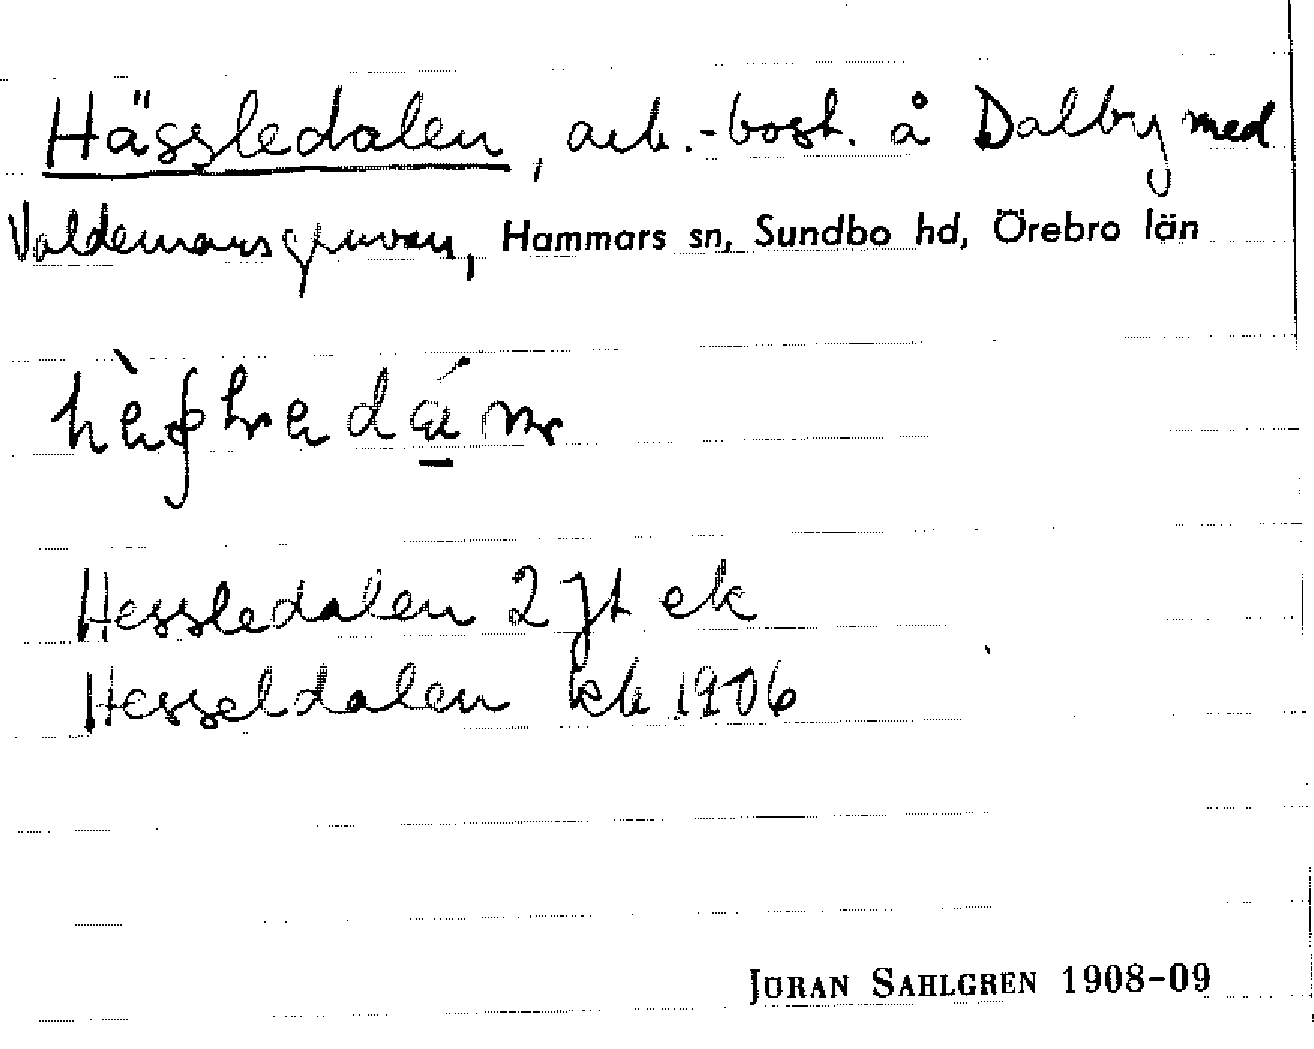 Hässledalen, arb.-bost. å Dalby med
Valdemarsgruvan, Hammars sn, Sundbo hd, Örebro län
Hessledalen 2 jt ek
Hesseldalen kb 1906
JÖRAN SAHLGREN 1908-09